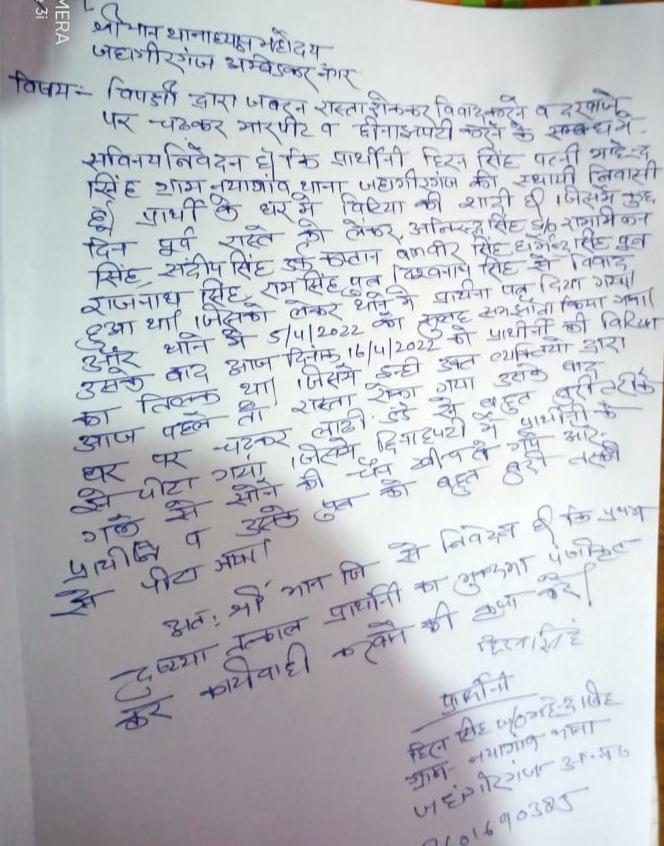 MERA
3i
श्रीमान थानाध्यक्ष महोदय
जहाँगीरगंज अम्बेडकर नगर
विषय:- विपक्षी द्वारा जबरन रास्ता रोककर विवाद करने व दरवाजे
पर चढकर मारपीट व छीनाझपटी करने के सम्बन्ध मे.
सविनय निवेदन है कि प्रार्थीनी हिरन सिंह पत्नी महेन्द्र
सिंह ग्राम नयागांव थाना जहागीरगंज की स्थायी निवासी
हूँ प्रार्थी के घर मे बिटिया की शादी है। जिसमें कुछ
दिन पूर्व रास्ते को लेकर, अनिरुद्ध सिंह s/o
सिंह, संदीप सिंह उर्फ कप्तान सिंह सिंह पुत्र
राजनाथ सिंह, राम सिंह पुत्र विश्वनाथ सिंह से विवाद
हुआ था। जिसको लेकर थाने मे प्रार्थना पत्र दिया गया।
और थाने मे 5/4/2022 को सुलह समझौता किया गया।
उसके बाद आज दिनांक 16/4/2022 को प्रार्थीनी की बिटिया
का तिलक था। जिसमें इन्ही उक्त व्यक्तियो द्वारा
आज पहले तो रास्ता रोका गया उसके बाद
घर पर चढकर लाठी डंडे से बहुत बुरी तरीके
से पीटा गया। जिसमें छिनाझपटी में प्रार्थीनी के
गले से सोने की चैन खीच ले गये और.
प्रार्थीनी व उसके पुत्र को बहुत बुरी तरीके
से पीटा गया।
अत: श्री मान जि से निवेदन है कि
कृपया तत्काल प्रार्थीनी का मुकदमा पंजीकृत
कर कार्यवाही करने की कृपा करें।
हिरन सिंह
प्रार्थीनी
हिरन सिंह w/o महेन्द्र सिंह
ग्राम- नयागांव थाना
जहांगीरगंज
01690385